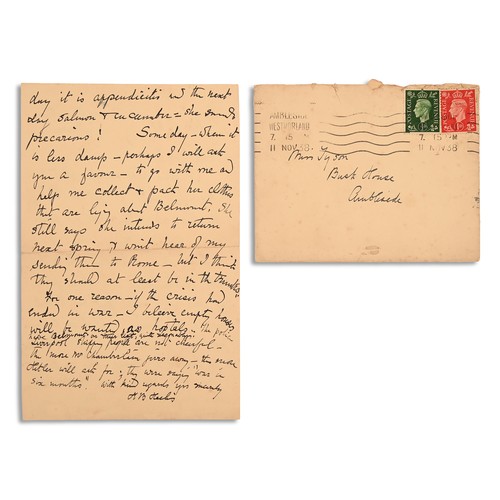 day it is appendicitis & the next
day salmon & cucumber – she sounds
precarious! Some day – when it
is less damp – perhaps I will ask
you a favour – to go with me and
help me collect & pack her clothes
that are lying about Belmount. She
still says she intends to return
next spring & won't hear of my
sending them to Rome – but I think
they should at least be in the trunks.
For one reason – if the crisis had
ended in war – I believe empty houses
will be wanted as hospitals. The police
have Belmount on their list,
Liverpool people are not cheerful –
the "more Mr Chamberlain gives away – the more
Hitler will ask for"; they were saying "war in
six months". With kind regards yrs sincerely
H B Heelis
AMBLESIDE
WESTMORLAND
7. 15 PM
11 NOV 38
7. 15 PM
11 NOV 38
POSTAGE
REVENUE
POSTAGE
REVENUE
Miss Tyson
Bark House
Ambleside